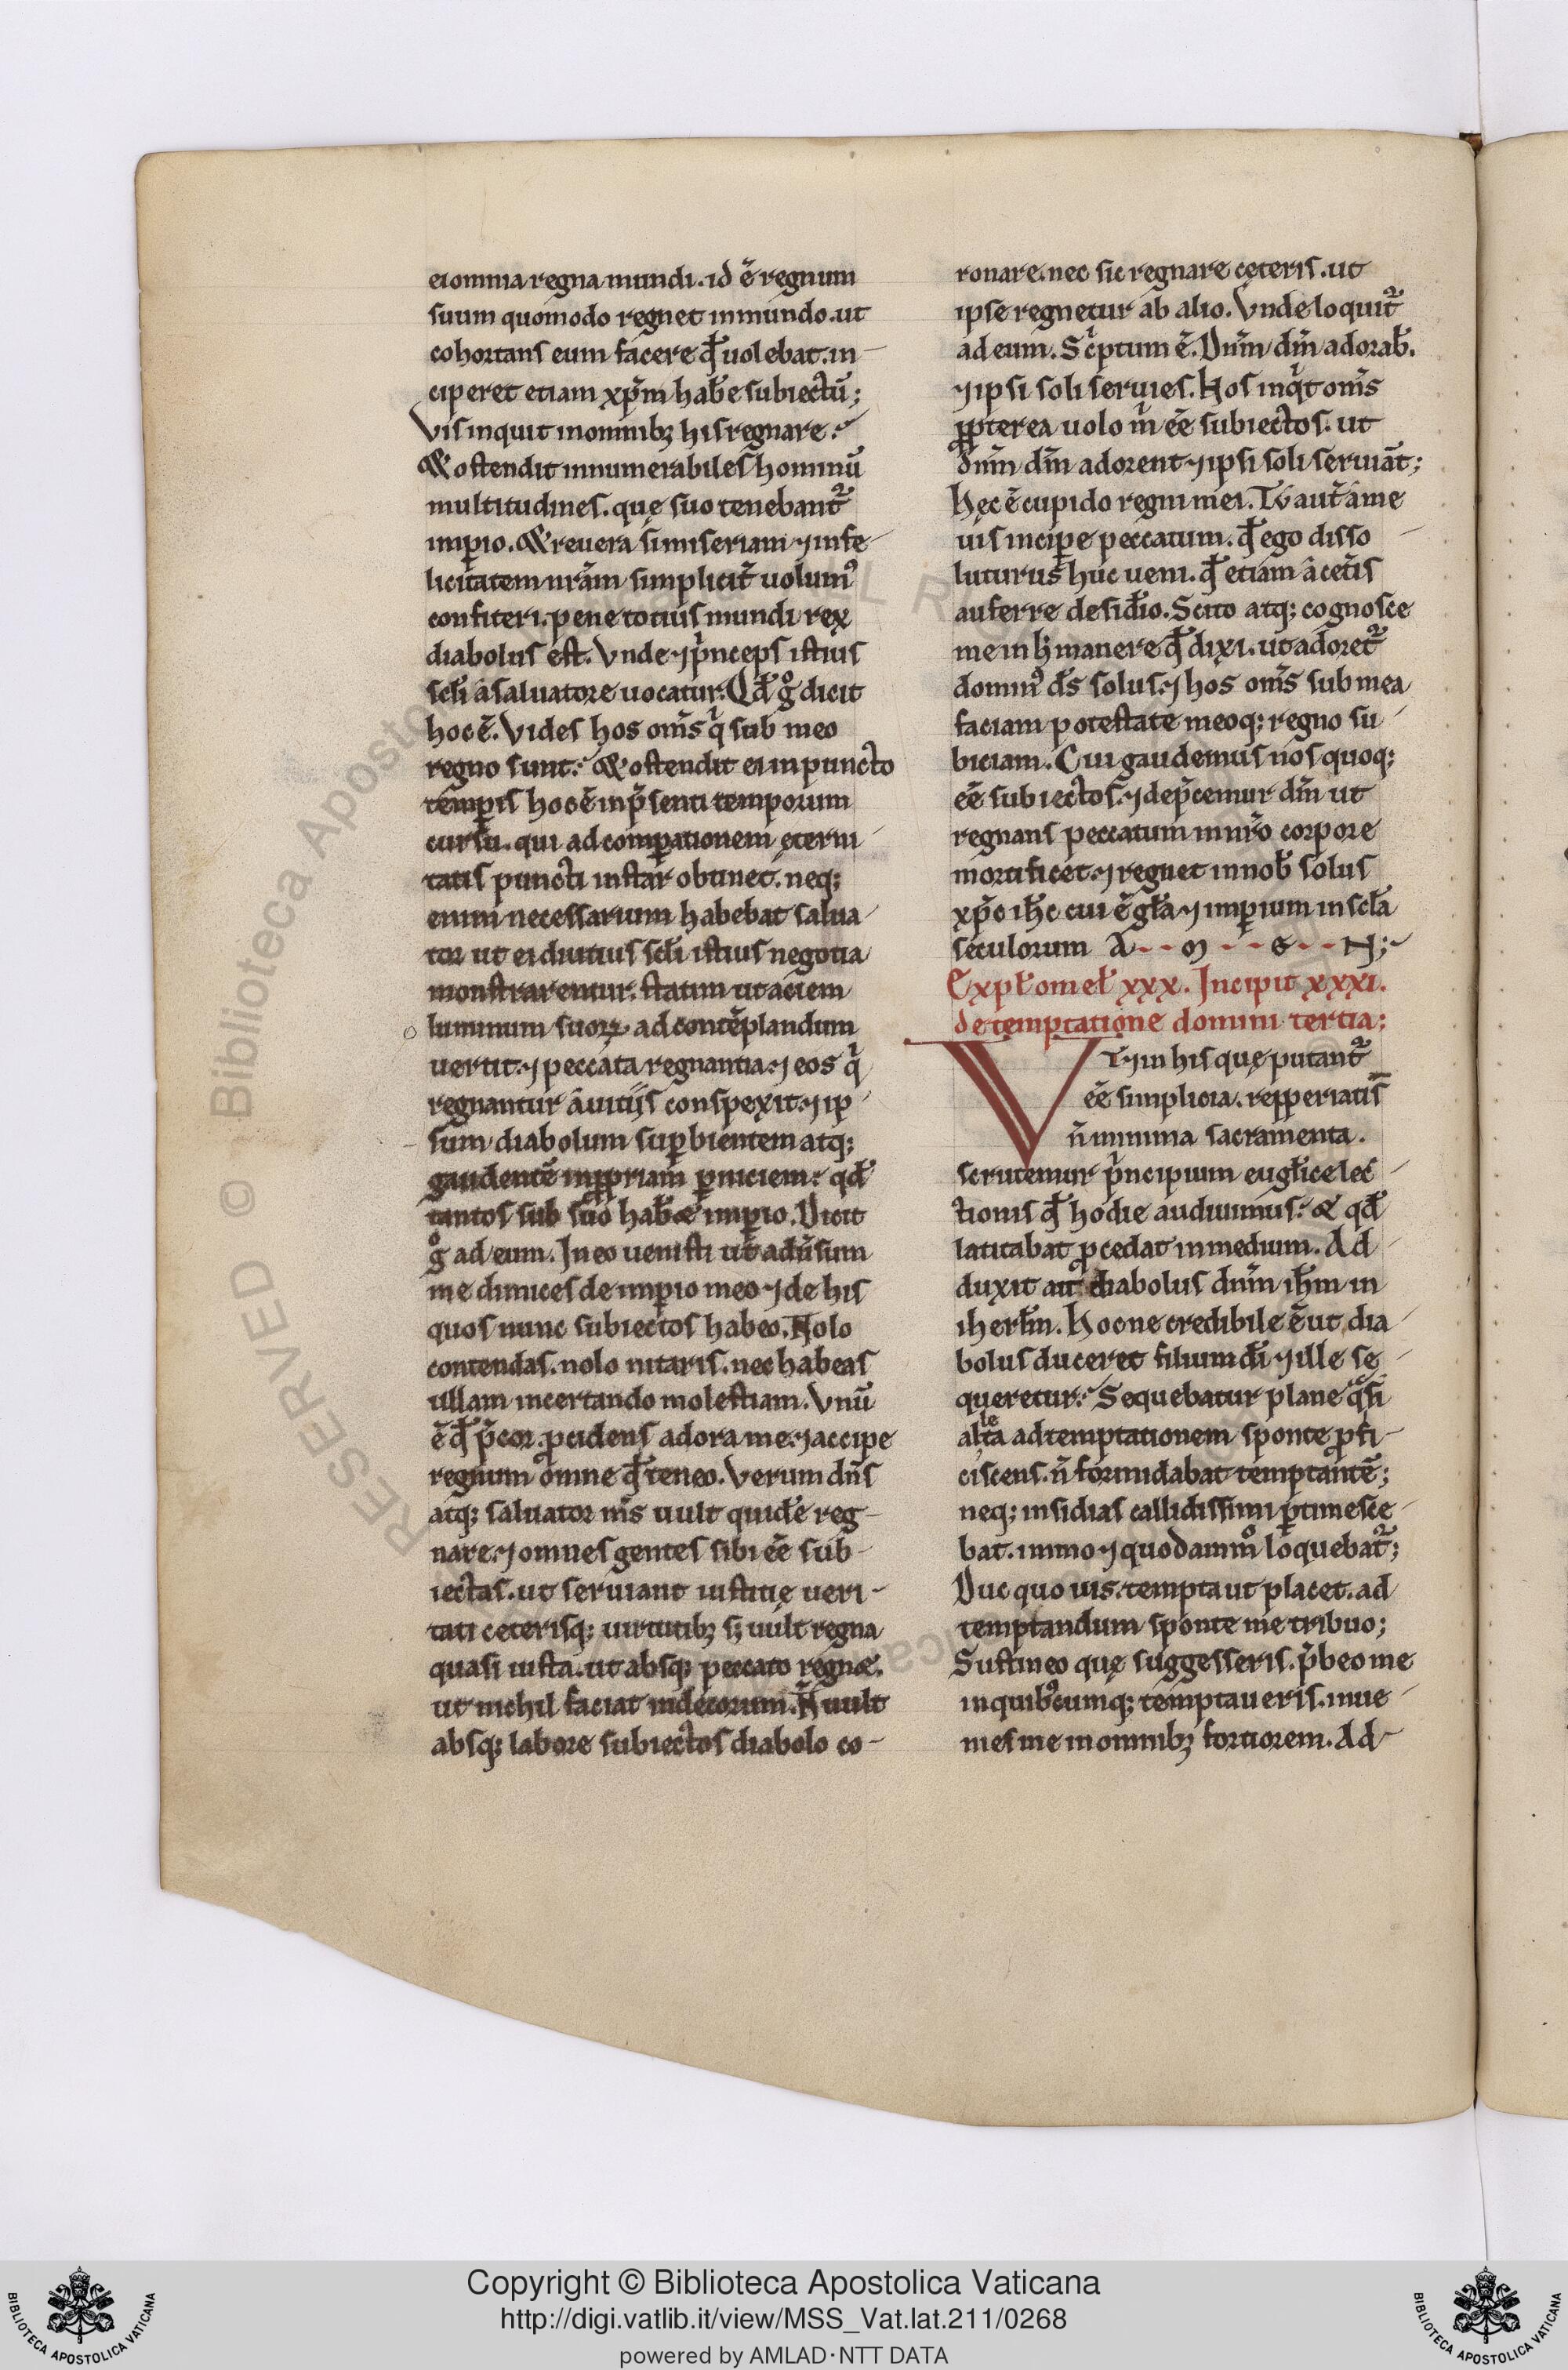 ei omnia regna mundi. id ē regnum
suum quomodo regnet in mundo. ut
cohortans eum facere qđ uolebat. in-
ciperet etiam xp̄m hab̄e subiectū;
Vis inquit in omnibꝫ his regnare?
& ostendit innumerabiles hominū
multitudines. quę suo tenebant᷑
imꝑio. & reuera si miseriam ⁊ infe-
licitatem nr̄am simplicit᷑ uolumꝰ
confiteri. pene totius mundi rex
diabolus est. Vnde ⁊ pͥnceps istius
scłi a saluatore uocatur. Qđ g̊ dicit
hoc ē. Vides hos om̄s qͥ sub meo
regno sunt? & ostendit ei in puncto
temꝑis hoc ē in p̄senti temporum
cursu. qui ad comꝑationem ęterni-
tatis puncti instar obtinet. neq;
enim necessarium habebat salua-
tor ut ei diutius scłi istius negotia
monstrarentur. statim ut aciem
luminum suoꝝ ad contēplandum
uertit. ⁊ peccata regnantia. ⁊ eos qͥ
regnantur a uitijs conspexit. ⁊ ip-
sum diabolum suꝑbientem atq;
gaudentē in ꝓpriam ꝑniciem. qđ
tantos sub suo hab& imꝑio. Dicit
g̊ ad eum. In eo uenisti ut adūsum
me dimices de imꝑio meo ⁊ de his
quos nunc subiectos habeo. Nolo
contendas. nolo nitaris. nec habeas
ullam in certando molestiam. Vnū
ē qđ p̄cor. ꝓcidens adora me. ⁊ accipe
regnum omne qđ teneo. Verum dn̄s
atq; saluator nr̄s uult quidē reg-
nare. ⁊ omnes gentes sibi eē sub-
iectas. ut seruiant iustitię ueri-
tati ceterisq; uirtutibꝫ sꝫ uult regna
quasi iusta. ut absq; peccato regn&.
ut nichil faciat indecorum. N̄ uult
absq; labore subiectos diabolo co-
ronare. nec sic regnare ceteris. ut
ipse regnetur ab alio. Vnde loquit᷑
ad eum. Scͥptum ē. Dn̄m dm̄ adorab̄.
⁊ ipsi soli seruies. Hos inqͥt om̄s
ꝓpterea uolo m̄ eē subiectos. ut
dn̄m dm̄ adorent ⁊ ipsi soli seruiāt;
Hęc ē cupido regni mei. Tu aut̄ a me
uis inciꝑe peccatum. qđ ego disso-
luturus huc ueni. qđ etiam a cet̄is
auferre desidīo. Scito atq; cognosce
me in h̄ manere qđ dixi. ut adoret᷑
dominꝰ ds̄ solus. ⁊ hos om̄s sub mea
faciam potestate meoq; regno su-
biciam. Cui gaudemus nos quoq;
eē subiectos. ⁊ dep̄cemur dm̄ ut
regnans peccatum in nr̄o corpore
mortificet. ⁊ regnet in nob̄ solus
xp̄c ih̄c cui ē gła ⁊ imꝑium in scła
seculorum A - - M - - E - - N;
Expł omeł xxx. Incipit xxxi.
de temptatione domini tertia;
VT ⁊ in his quę putant᷑
eē simplicia. repperiatis
n̄ minima sacramenta.
scrutemur pͥncipium eugłicę lec-
tionis qđ hodie audiuimus. & qđ
latitabat ꝓcedat in medium. Ad-
duxit aut̄ diabolus dn̄m ih̄m in
iherłm. Hocne credibile ē ut dia-
bolus duceret filium di ⁊ ille se-
queretur? Sequebatur plane qͣsi
alta le ad temptationem sponte ꝓfi-
ciscens. n̄ formidabat temptantē;
neq; insidias callidissimi ꝑtimesce-
bat. immo ⁊ quodammo loquebat᷑;
Duc quo uis. tempta ut placet. ad
temptandum sponte me tribuo;
Sustineo quę suggesseris. p̄beo me
in quibꝰcumq; temptaueris. inue-
nies me in omnibꝫ fortiorem. Ad-
© Biblioteca Apostolica Vaticana
Copyright © Biblioteca Apostolica Vaticana
http://digi.vatlib.it/view/MSS_Vat.lat.211/0268
powered by AMLAD·NTT DATA
BIBLIOTECA APOSTOLICA VATICANA
BIBLIOTECA APOSTOLICA VATICANA